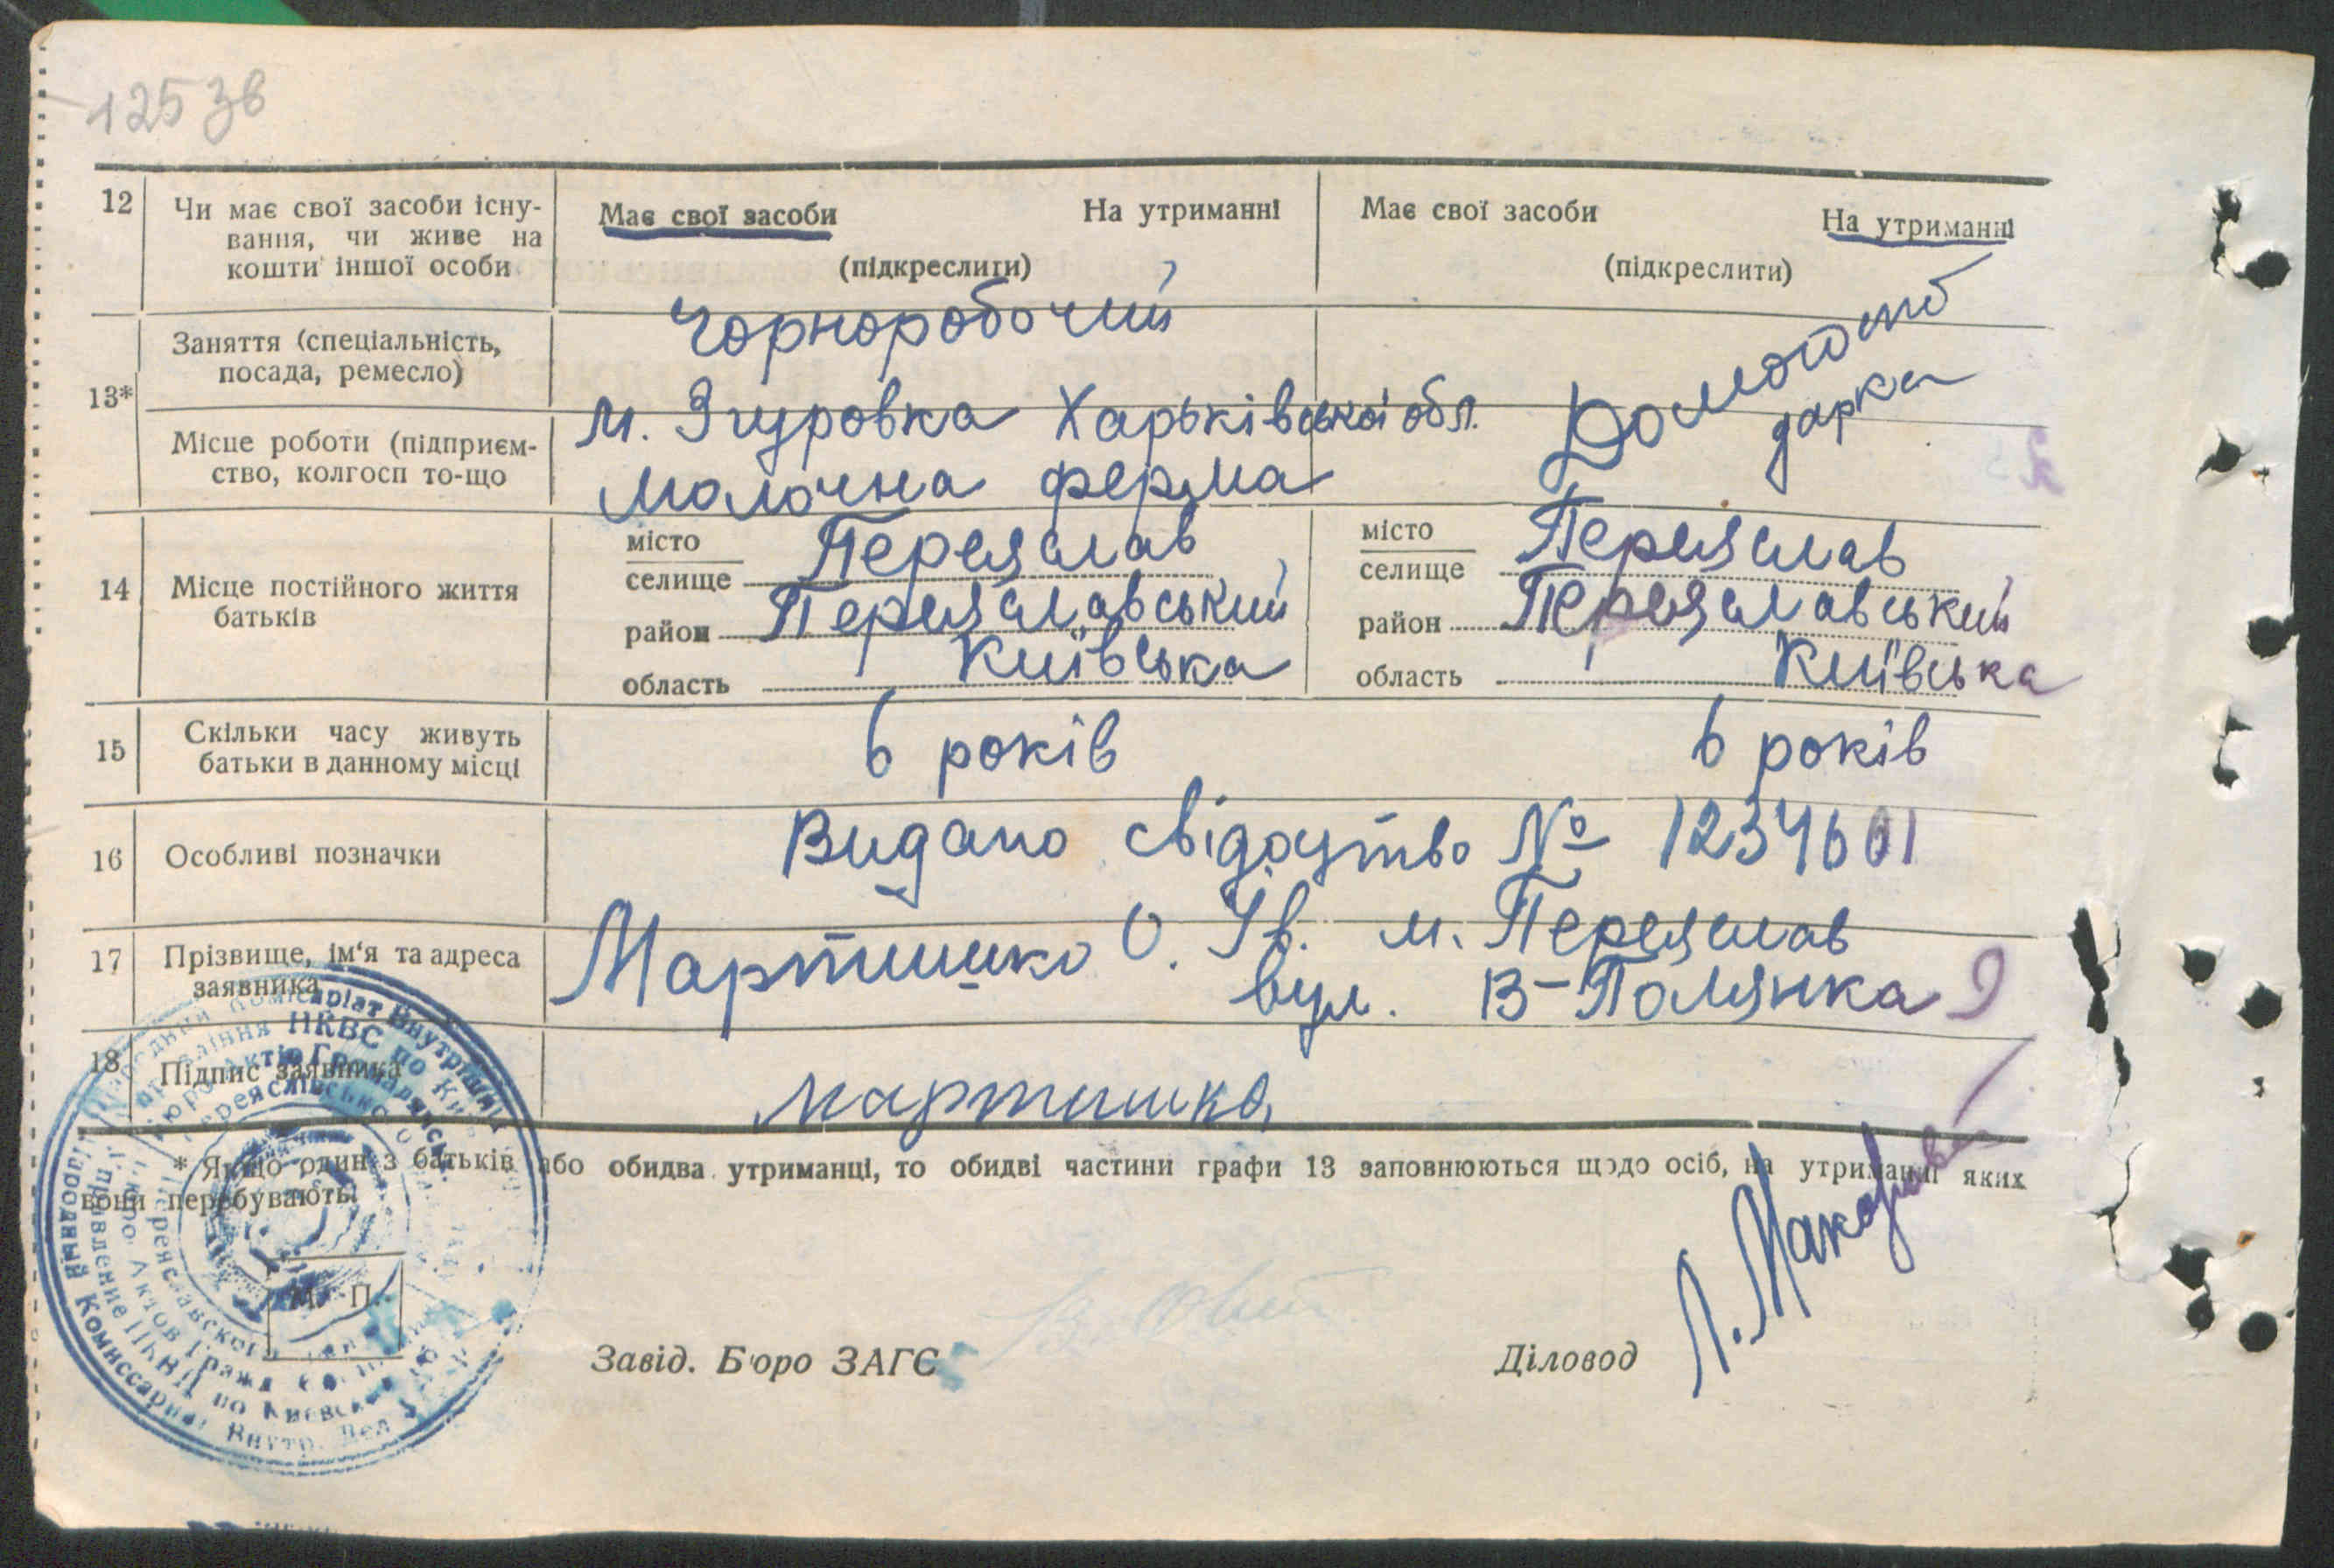 125 зв
12 Чи має свої засоби існу- Має свої засоби На утриманні Має свої засоби На утриманні
вання, чи живе на
кошти іншої особи (підкреслити) (підкреслити)
13* Заняття (спеціальність, Чорноробочий Домогоспо
посада, ремесло) дарка
Місце роботи (підприєм- м. Згуровка Харьківської обл.
ство, колгосп то-що молочна ферма
14 Місце постійного життя батьків
місто Переяслав місто Переяслав
селище селище
район Переяславський район Переяславський
область Київська область Київська
15 Скільки часу живуть 6 років 6 років
батьки в данному місці
16 Особливі позначки Видано свідоцтво № 1234601
17 Прізвище, ім'я та адреса Мартишко О. Ів. м. Переяслав
заявника вул. В-Полянка 9
18 Підпис заявника мартишко
* Якщо один з батьків або обидва утриманці, то обидві частини графи 13 заповнюються щодо осіб, на утриманні яких
вони перебувають.
М. П.
Завід. Бюро ЗАГС Діловод Л.
Народний Комісаріат Внутрішніх
Управління НКВС по
Бюро Актів Громадянськ.
Переяслівського
Народный Комиссариат Внутр. Дел
Управление НКВД по Киевской
Бюро Актов Гражд.
Переяславского